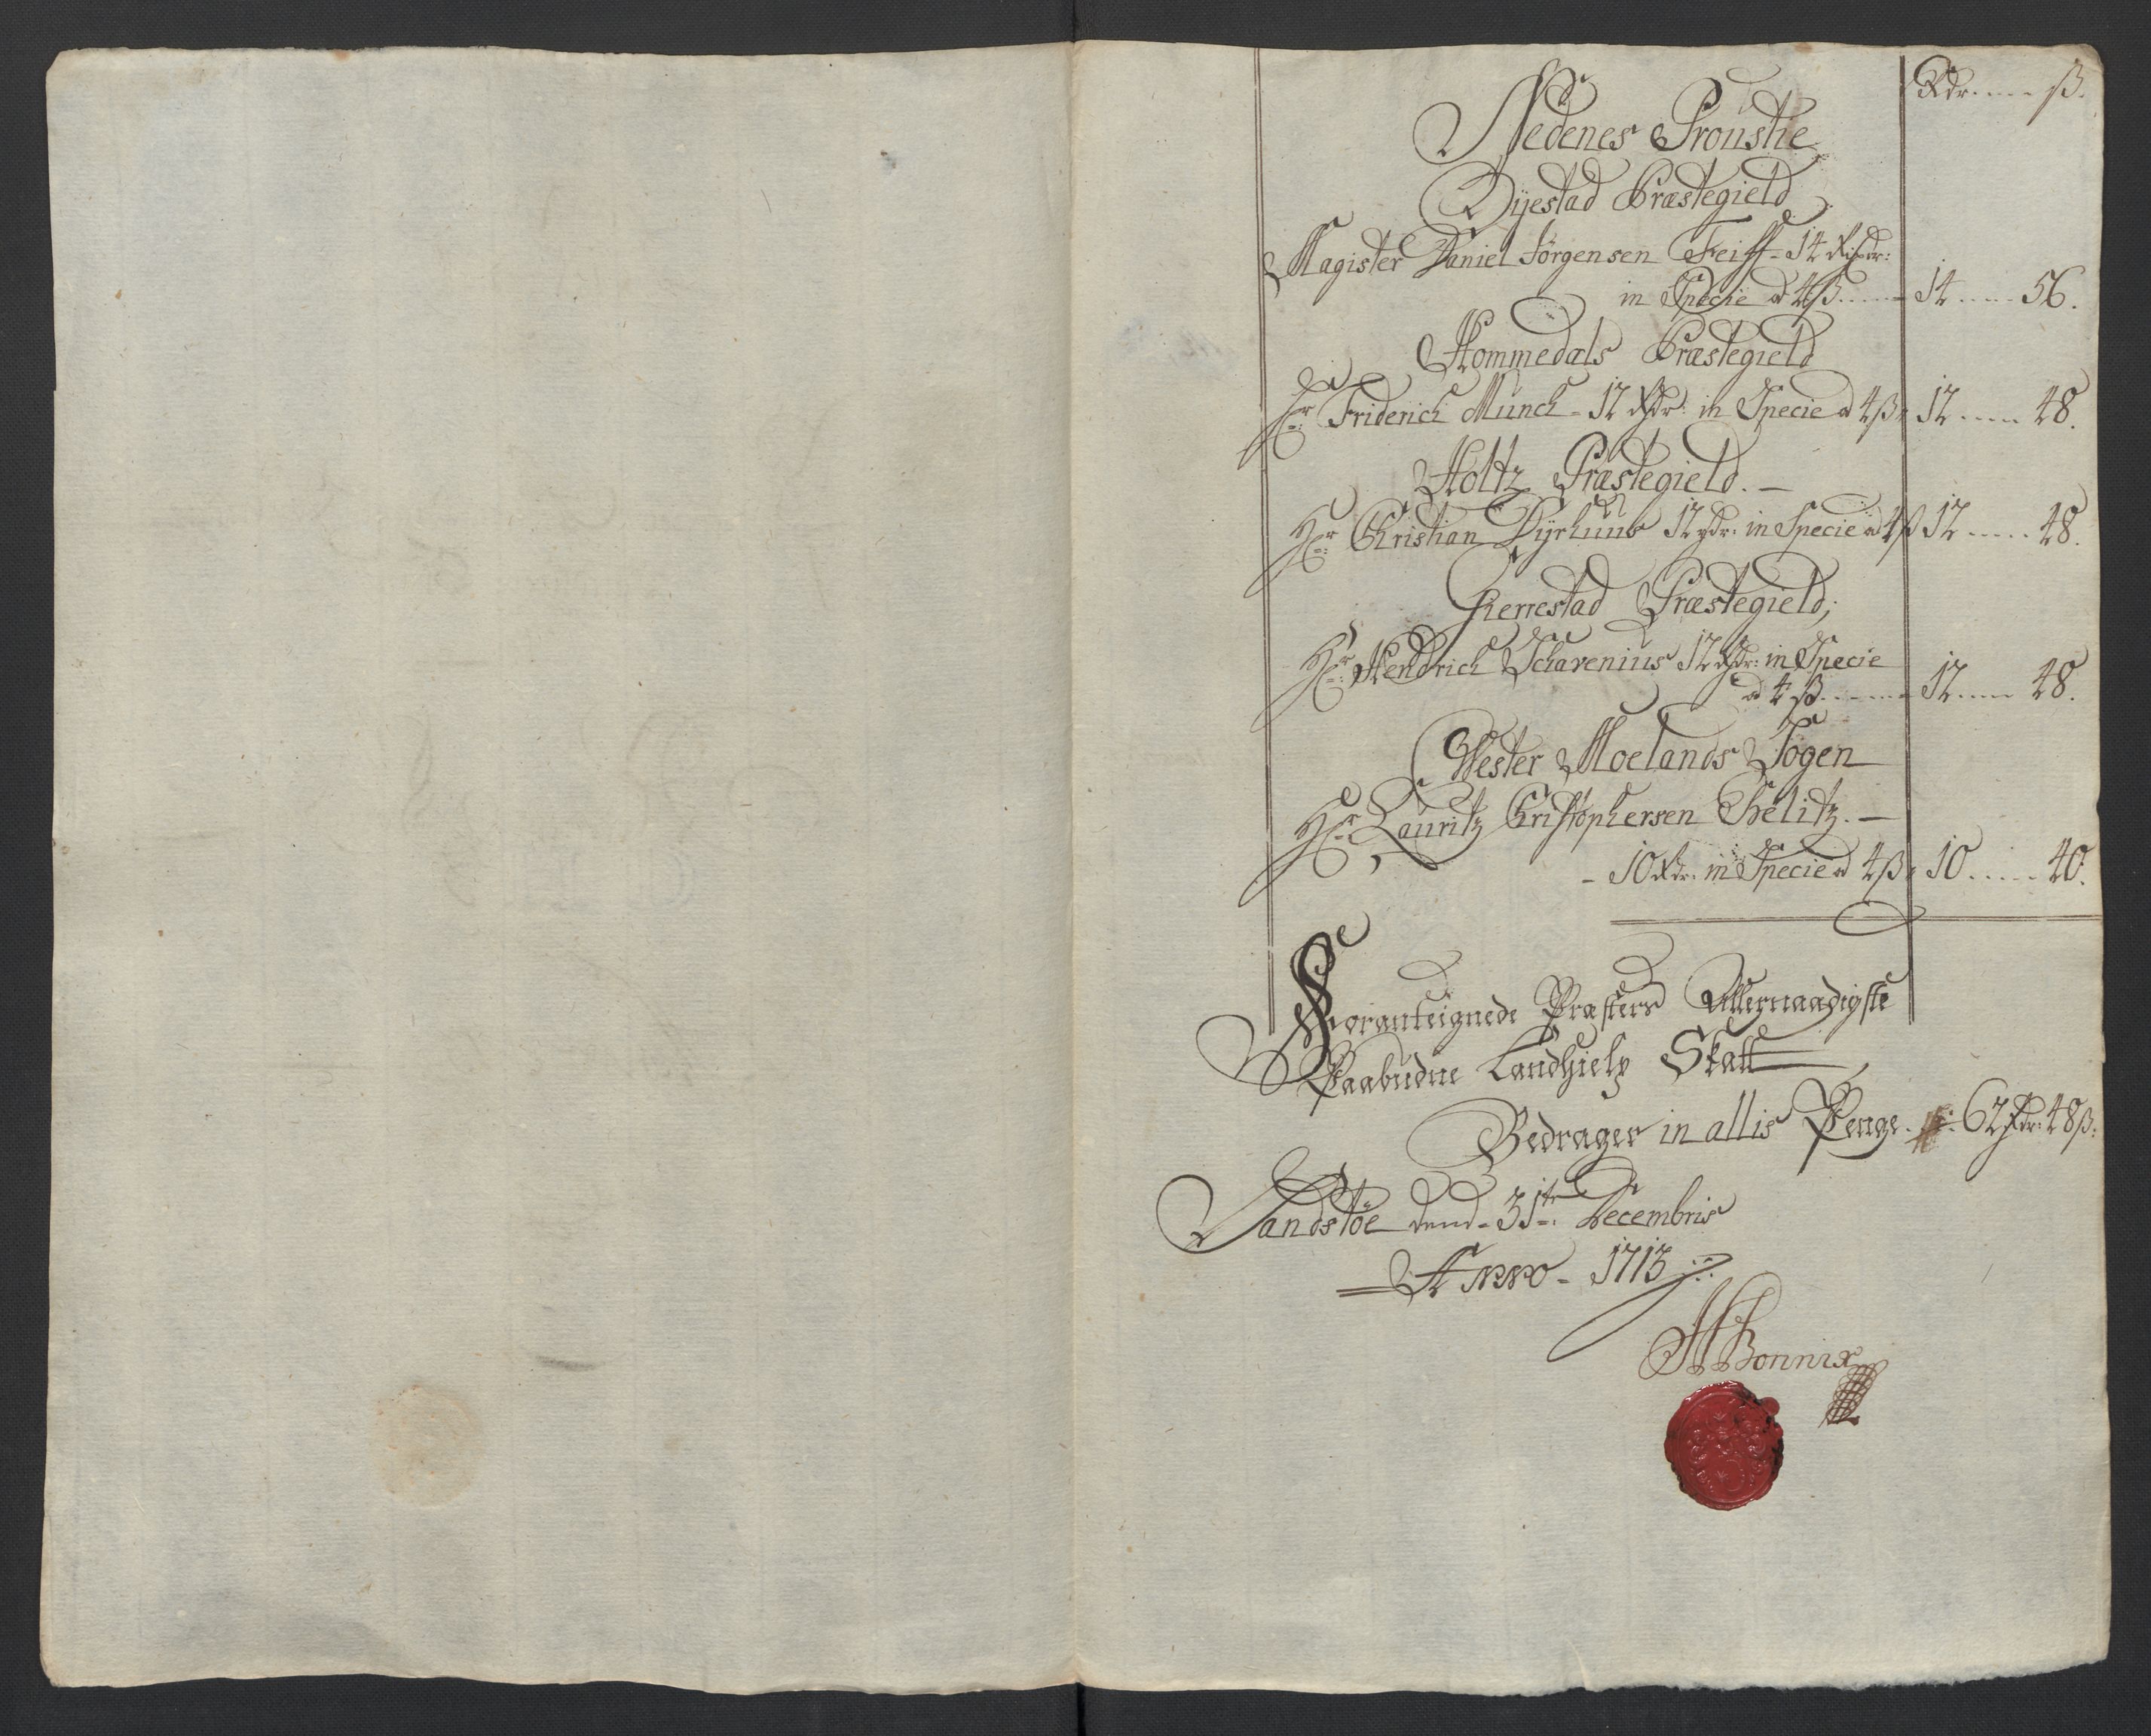 Rdr. ß.
Nedenes Proustie
Öyestad Præstegield
Magister Daniel Jørgensen Feiff - 14 Rixdr:
in Specie a 4 ß 14 56.
Hommedals Præstegield
Hr: Friderich Münch - 12 Rdr: in Specie a 4 ß 12 48.
Holtz Præstegield. —
Hr: Christian Dyrhuus 12 rdr: in Specie a 4 ß 12 48.
Gierrestad Præstegield;
Hr: Hendrich Schavenius 12 Rdr: in Specie
a 4 ß 12 48.
Wester Moelands Sogen
Hr: Lauritz Christophersen Thelitz. —
- 10 Rdr: in Specie a 4 ß 10 40.
Foranteignede Præsters Allernaadigste
Paabudne Landhielp Skatt
Bedrager in allis Penge - 62 Rdr: 48 ß:
Sandstöe dend - 31te: Decembris
Anno - 1713